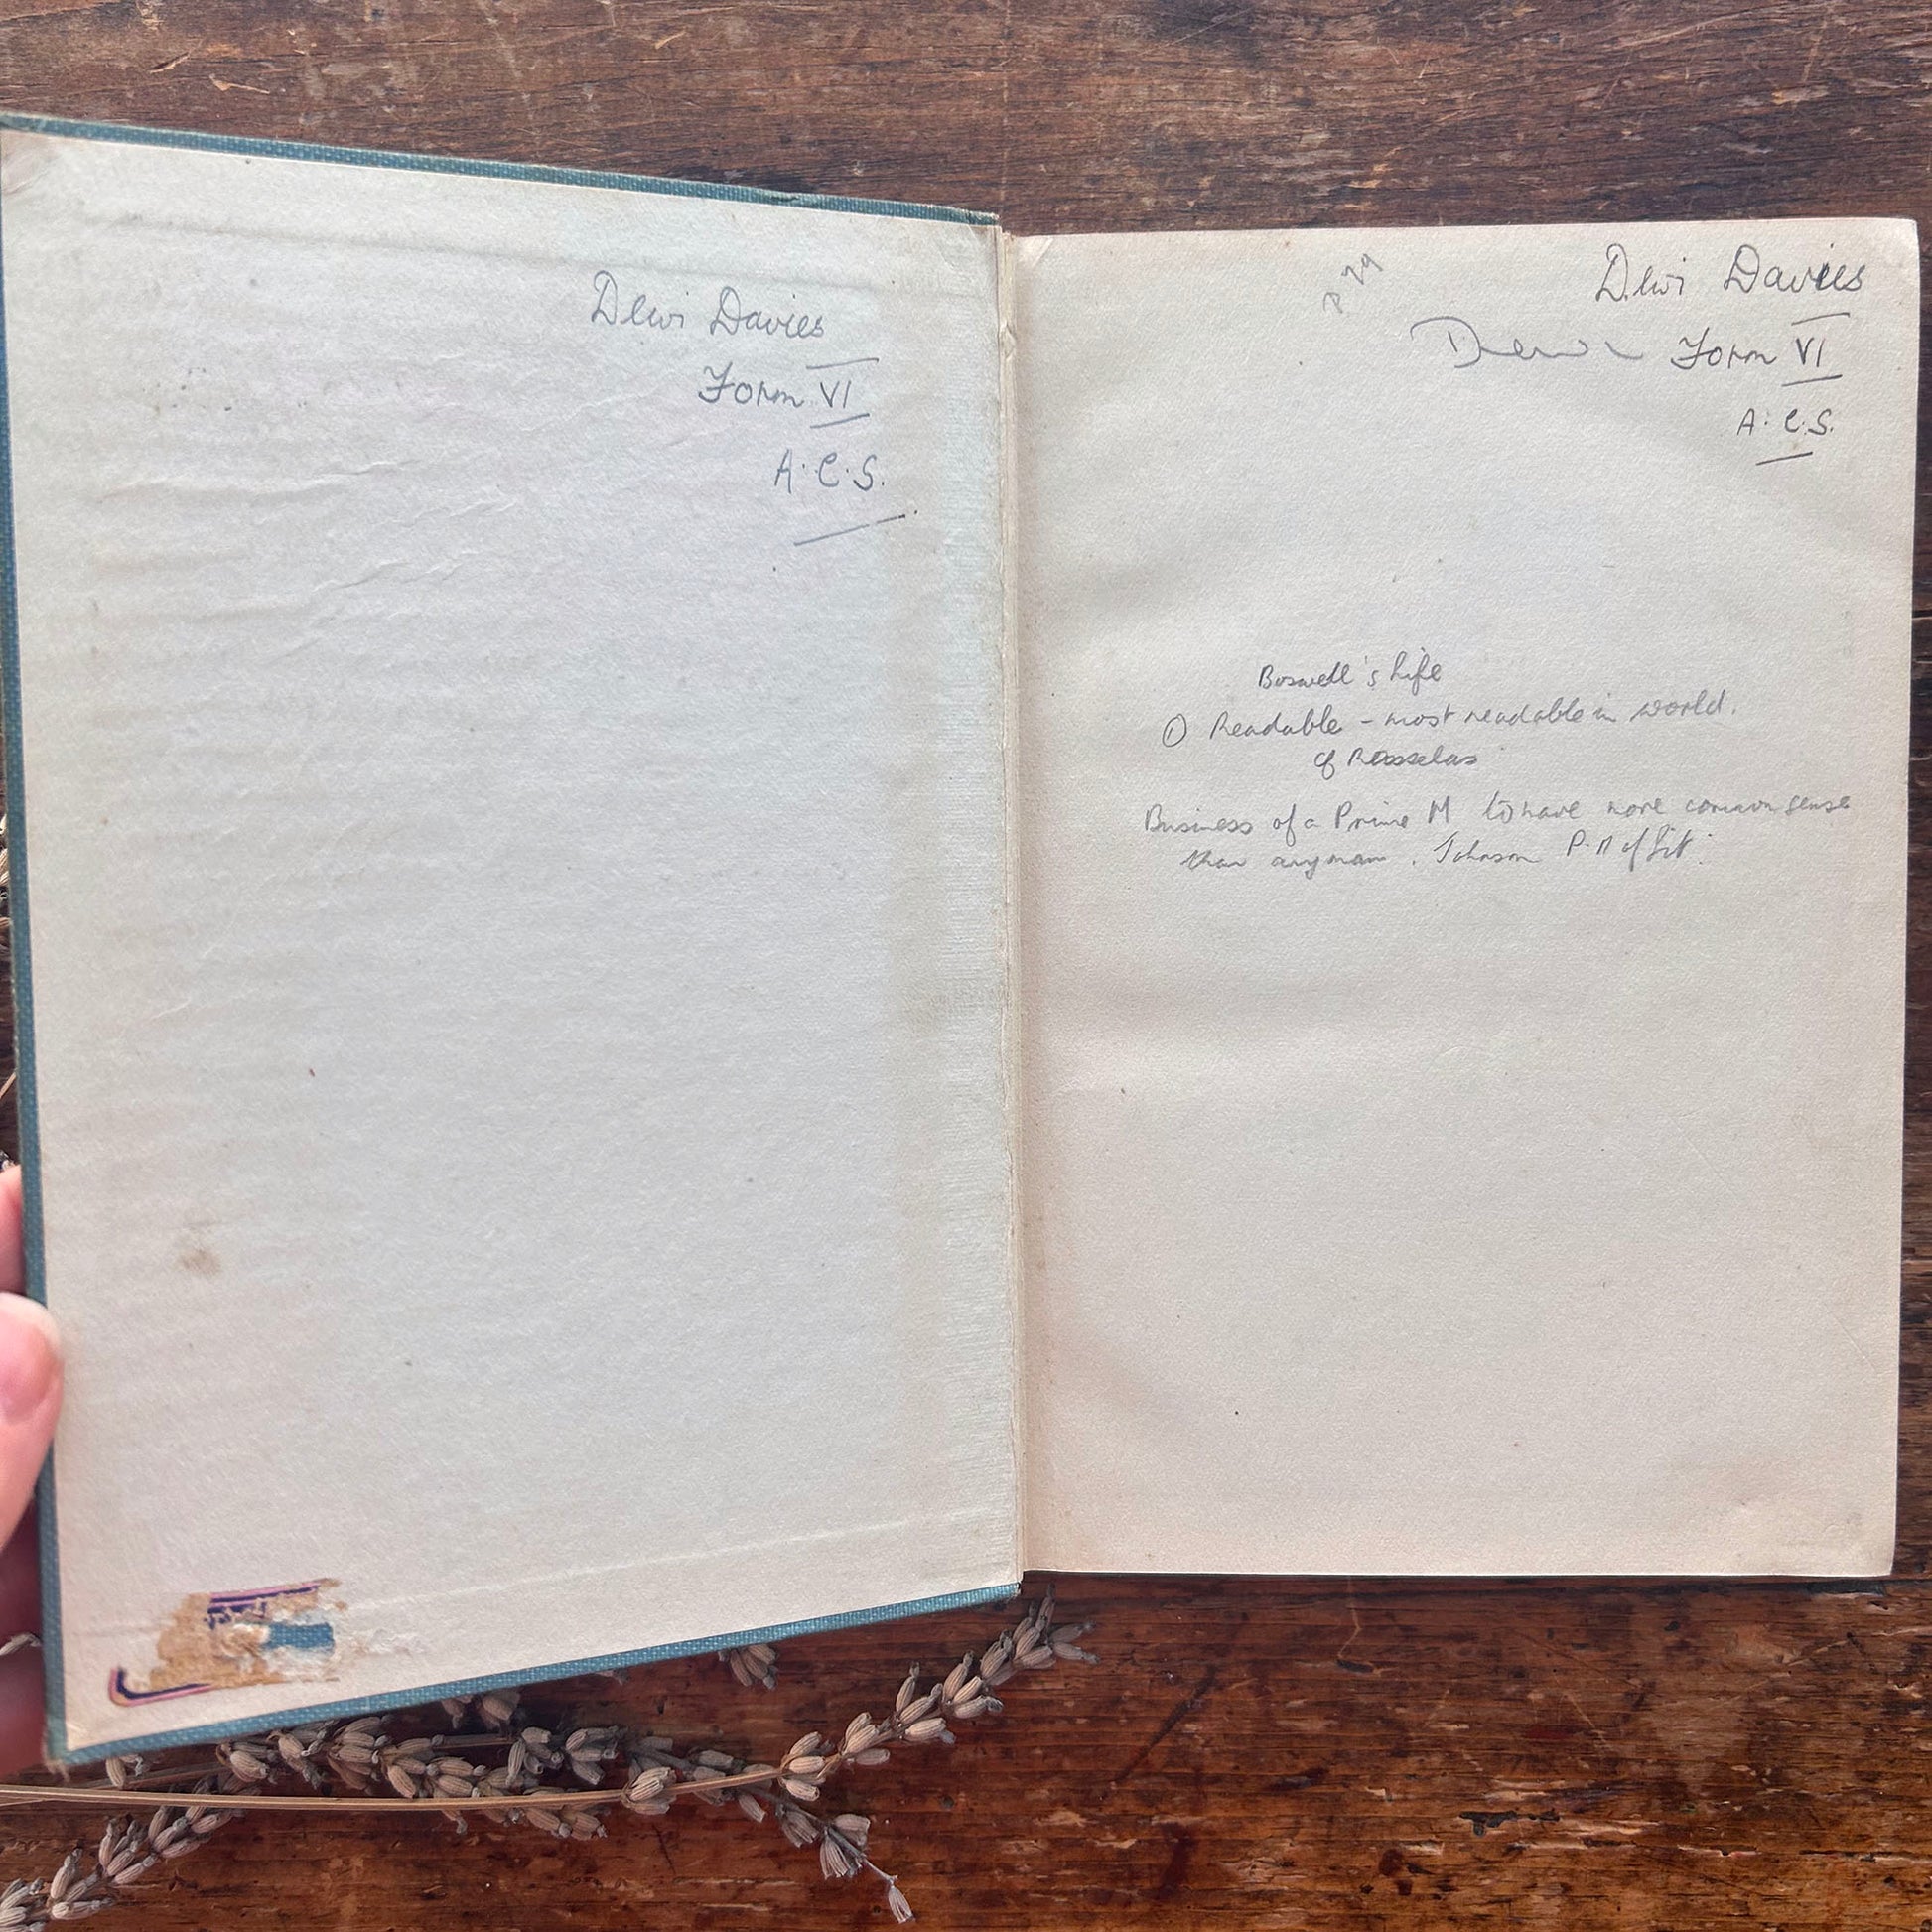 Dewi Davies
Form VI
A.C.S.
P 29
Dewi Davies
Dewi Form VI
A.C.S.
Boswell's Life
① Readable - most readable in world.
cf Rasselas
Business of a Prime M to have more common sense
than any man. Johnson P.M of Lit.